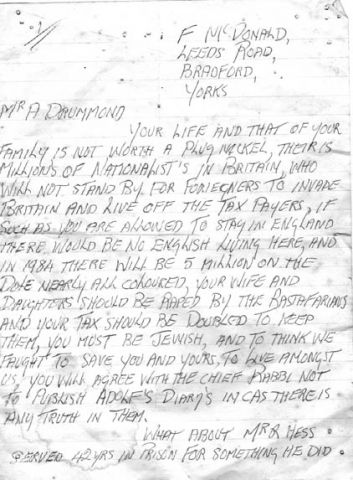 F McDONALD,
LEEDS ROAD,
BRADFORD,
YORKS
MR A DRUMMOND
YOUR LIFE AND THAT OF YOUR
FAMILY IS NOT WORTH A PLUG NICKEL, THEIR IS
MILLIONS OF NATIONALIST'S IN BRITAIN, WHO
WILL NOT STAND BY FOR FORIEGNERS TO INVADE
BRITAIN AND LIVE OFF THE TAX PAYERS, IF
SUCH AS YOU ARE ALLOWED TO STAY IN ENGLAND
THERE WOULD BE NO ENGLISH LIVING HERE, AND
IN 1984 THERE WILL BE 5 MILLION ON THE
DOLE NEARLY ALL COLOURED, YOUR WIFE AND
DAUGHTERS SHOULD BE RAPED BY THE RASTAFARIANS
AND YOUR TAX SHOULD BE DOUBLED TO KEEP
THEM, YOU MUST BE JEWISH, AND TO THINK WE
FAUGHT TO SAVE YOU AND YOURS, TO LIVE AMONGST
US, YOU WILL AGREE WITH THE CHIEF RABBI NOT
TO PUBLISH ADOLF'S DIARY'S IN CAS THERE IS
ANY TRUTH IN THEM.
WHAT ABOUT MR R HESS
SERVED 42 YRS IN PRISON FOR SOMETHING HE DID